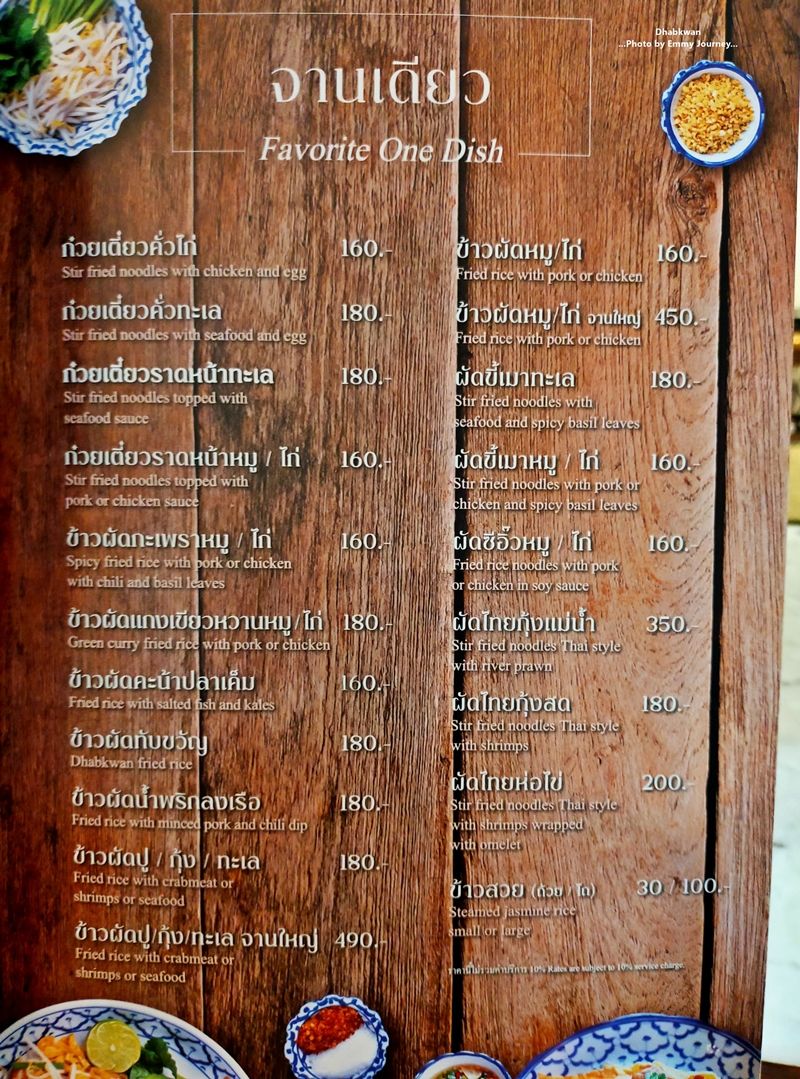 Dhabkwan
...Photo by Emmy Journey...
จานเดียว
Favorite One Dish
ก๋วยเตี๋ยวคั่วไก่ 160.-
Stir fried noodles with chicken and egg
ก๋วยเตี๋ยวคั่วทะเล 180.-
Stir fried noodles with seafood and egg
ก๋วยเตี๋ยวราดหน้าทะเล 180.-
Stir fried noodles topped with
seafood sauce
ก๋วยเตี๋ยวราดหน้าหมู / ไก่ 160.-
Stir fried noodles topped with
pork or chicken sauce
ข้าวผัดกะเพราหมู / ไก่ 160.-
Spicy fried rice with pork or chicken
with chili and basil leaves
ข้าวผัดแกงเขียวหวานหมู/ไก่ 180.-
Green curry fried rice with pork or chicken
ข้าวผัดคะน้าปลาเค็ม 160.-
Fried rice with salted fish and kales
ข้าวผัดทับขวัญ 180.-
Dhabkwan fried rice
ข้าวผัดน้ำพริกลงเรือ 180.-
Fried rice with minced pork and chili dip
ข้าวผัดปู / กุ้ง / ทะเล 180.-
Fried rice with crabmeat or
shrimps or seafood
ข้าวผัดปู/กุ้ง/ทะเล จานใหญ่ 490.-
Fried rice with crabmeat or
shrimps or seafood
ข้าวผัดหมู/ไก่ 160.-
Fried rice with pork or chicken
ข้าวผัดหมู/ไก่ จานใหญ่ 450.-
Fried rice with pork or chicken
ผัดขี้เมาทะเล 180.-
Stir fried noodles with
seafood and spicy basil leaves
ผัดขี้เมาหมู / ไก่ 160.-
Stir fried noodles with pork or
chicken and spicy basil leaves
ผัดซีอิ๊วหมู / ไก่ 160.-
Fried rice noodles with pork
or chicken in soy sauce
ผัดไทยกุ้งแม่น้ำ 350.-
Stir fried noodles Thai style
with river prawn
ผัดไทยกุ้งสด 180.-
Stir fried noodles Thai style
with shrimps
ผัดไทยห่อไข่ 200.-
Stir fried noodles Thai style
with shrimps wrapped
with omelet
ข้าวสวย (ถ้วย / โถ) 30 / 100.-
Steamed jasmine rice
small or large
ราคานี้ไม่รวมค่าบริการ 10% Rates are subject to 10% service charge.